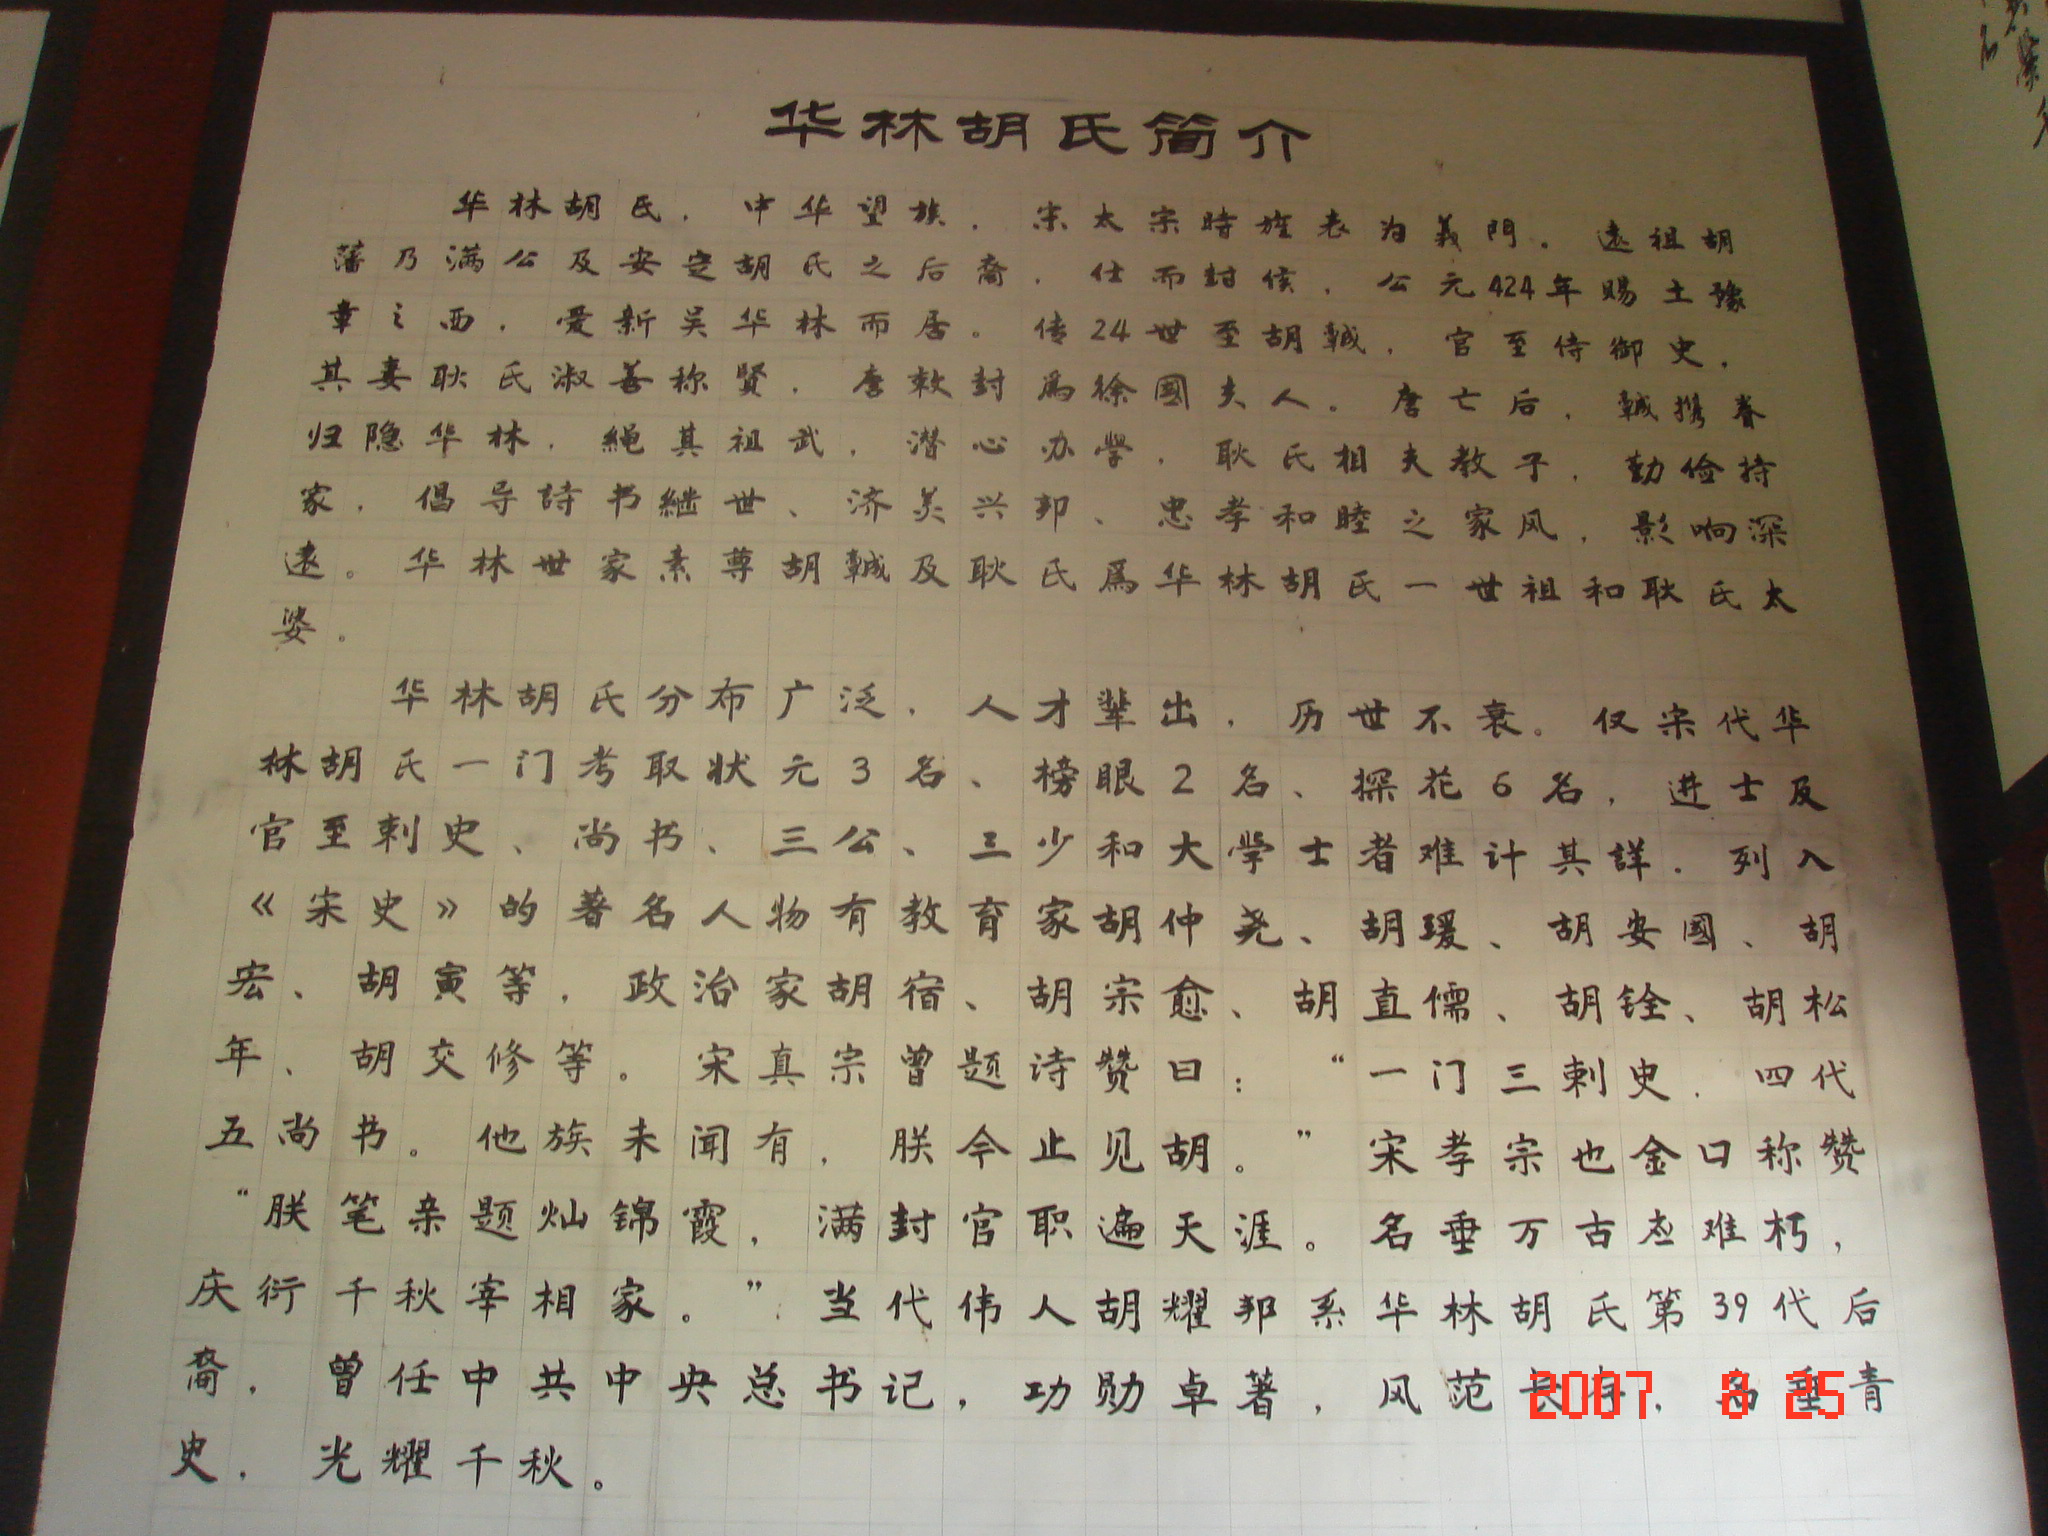 华林胡氏简介
华林胡氏，中华望族，宋太宗時旌表为義門。遠祖胡
藩乃满公及安定胡氏之后裔，仕而封侯，公元424年赐土豫
章之西，爱新吴华林而居。传24世至胡㦤，官至侍御史，
其妻耿氏淑善称贤，唐敕封為徐國夫人。唐亡后，㦤携眷
归隐华林，繩其祖武，潜心办學，耿氏相夫教子，勤俭持
家，倡导詩书継世、济美兴邦、忠孝和睦之家风，影响深
遠。华林世家素尊胡㦤及耿氏為华林胡氏一世祖和耿氏太
婆。
华林胡氏分布广泛，人才辈出，历世不衰。仅宋代华
林胡氏一门考取状元3名、榜眼2名、探花6名，进士及
官至刺史、尚书、三公、三少和大學士者难计其詳．列入
《宋史》的著名人物有教育家胡仲尧、胡瑗、胡安國、胡
宏、胡寅等，政治家胡宿、胡宗愈、胡直儒、胡铨、胡松
年、胡交修等。宋真宗曾题诗赞曰：“一门三刺史，四代
五尚书。他族未闻有，朕今止见胡。”宋孝宗也金口称赞
“朕笔亲题灿锦霞，满封官职遍天涯。名垂万古应难朽，
庆衍千秋宰相家。”当代伟人胡耀邦系华林胡氏第39代后
裔，曾任中共中央总书记，功勋卓著，风范长存，名垂青
史，光耀千秋。
2007. 8 25